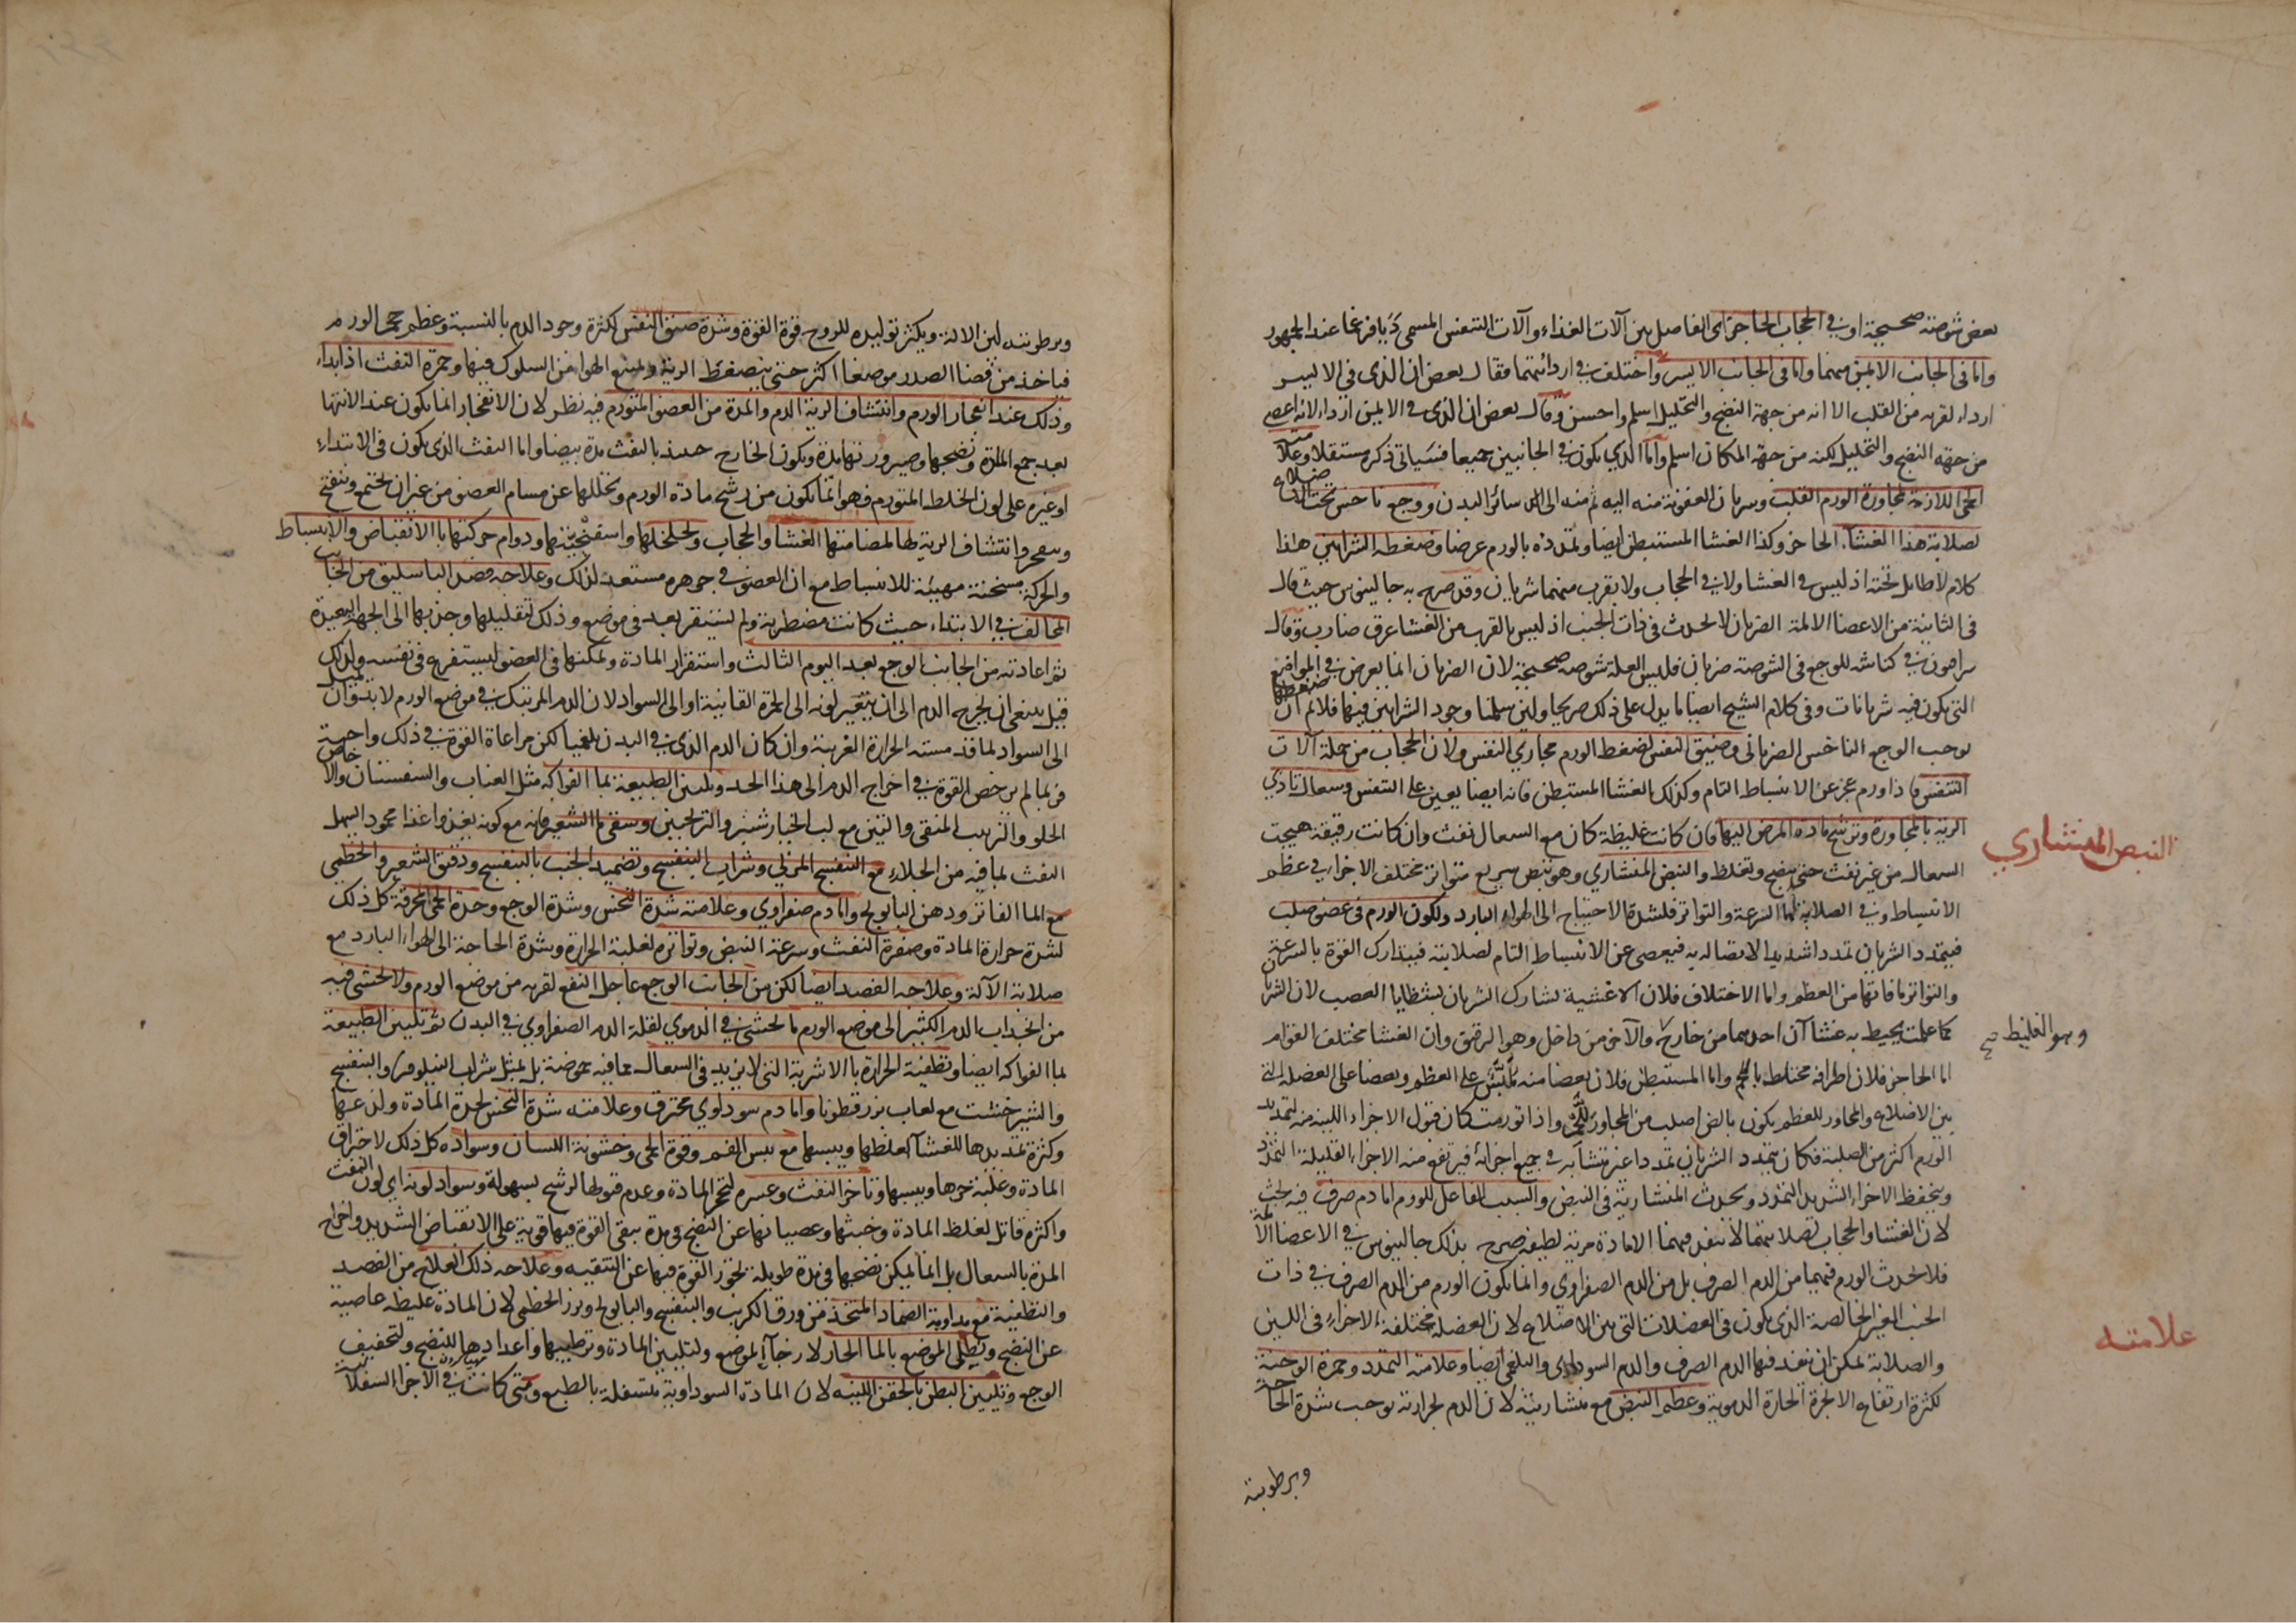 بعض شوصة صحيحة او في الحجاب الحاجز اى الفاصل بين آلات الغذاء وآلات التنفس المسمى ديافرغما عند الجمهور
واما في الجانب الايمن منهما واما في الجانب الايسر واختلف في اردائهما فقال بعض ان الذى في الايسر
ارداء لقربه من القلب الا انه من جهة النضج والتحليل اسلم واحسن وقال بعض ان الذى في الايمن ارداء لانه اعصى
من جهة النضج والتحليل لكنه من جهة المكان اسلم واما الذي يكون في الجانبين جميعا فسياتى ذكره مستقلا وعلامته
الحمى اللازمة لمجاورة الورم القلب وسريان العفونة منه اليه ثم منه الى سائر البدن ووجع ناخس تحت الاضلاع
لصلابة هذا الغشاء الحاجز وكذا الغشا المستبطن ايضا وتمدده بالورم عرضا وضغطه الشرايين هذا
كلام لا طايل تحته اذ ليس في الغشا ولا في الحجاب ولا بقرب منهما شريان وقد صرح به جالينوس حيث قال
فى الثانية من الاعضا الالمة الضربان لا يحدث في ذات الجنب اذ ليس بالقرب من الغشا عرق ضارب وقال
سرافيون في كناشه للوجع في الشوصة ضربان فليس العلة شوصة صحيحة لان الضربان انما يعرض في المواضع
التي يكون فيه شريانات وفى كلام الشيخ ايضا ما يدل على ذلك صريحا ولين سلمنا وجود الشرايين فيها فلانم ان ضغطها
يوجب الوجع الناخس الضربانى وضيق النفس لضغط الورم مجاري النفس ولان الحجاب من جملة آلات
التنفس فاذا ورم عجز عن الانبساط التام وكذلك الغشا المستبطن فانه ايضا يعين على التنفس وسعال لتاذي
الرية بالمجاورة وترشح مادة المرض اليها فان كانت غليظة كان مع السعال نفث وان كانت رقيقة هيجت
السعال من غير نفث حتى ينضج وتغلظ والنبض المنشاري وهو نبض سريع متواتر مختلف الاجزاء في عظم
الانبساط وفي الصلابة اما السرعة والتواتر فلشدة الاحتياج الى الهواء البارد ولكون الورم في عضو صلب
فيتمدد الشريان تمددا شديدا لاتصاله به فيعصى عن الانبساط التام لصلابته فيتدارك القوة بالسرعة
والتواتر ما فاتها من العظم واما الاختلاف فلان الاغشية تشارك الشريان بشظايا العصب لان الشريان
كما علمت يحيط به غشاآن احدهما من خارج والآخر من داخل وهو الرقيق وان الغشا مختلف القوام
اما الحاجز فلان اطرافه مختلط باللحم واما المستبطن فلان بعضا منه ملبس على العظم وبعضا على العضلة التى
بين الاضلاع والمجاور للعظم يكون اصلب من المجاور للحم واذا تورمت كان قبول الاجزاء اللينة منه لتمديد
الورم اكثر من الصلبة فكان يتمدد الشريان تمددا غير متشابه في جميع اجزائه فيرتفع منه الاجزاء القليلة التمدد
وينخفظ الاجزاء الشديد التمدد ويحدث المنشارية فى النبض والسبب الفاعل للورم اما دم صرف فيه بحث
لان الغشا والحجاب لصلابتهما لا ينفذ فيهما الا مادة مرية لطيفة صرح بذلك جالينوس في الاعضا الالمة
فلا يحدث الورم فيهما من الدم الصرف بل من الدم الصفراوي وانما يكون الورم من الدم الصرف في ذات
الجنب الغير الخالصة الذى يكون في العضلات التى بين الاضلاع لان العضلة مختلفة الاجزاء في اللين
والصلابة يمكن ان ينفذ فيها الدم الصرف والدم السوداوى والبلغمى ايضا وعلامته التمدد وحمرة الوجنة
لكثرة ارتفاع الابخرة الحارة الدموية وعظم النبض مع منشاريته لان الدم لحرارته يوجب شدة الحاجة
وبرطوبته
النبض المنشاري
وهو الغليظ صح
علامته
وبرطوبته لين الالة ويكثر توليده للروح قوة القوة وشدة ضيق النفس لكثرة وجود الدم بالنسبة وعظم حجم الورم
فياخذ من فضا الصدر موضعا اكثر حتى ينضغط الرية ويمنع الهوا من السلوك فيها وحمرة النفث اذا بداء
وذلك عند انفجار الورم وانتشاف الرية الدم والمدة من العضو المتورم فيه نظر لان الانفجار انما يكون عند الانتها
بعد جمع المادة ونضجها وصيرورتها مدة ويكون الخارج حينئذ بالنفث مدة بيضا واما النفث الذى يكون في الابتداء
او غيره على لون الخلط المتورم فهو انما يكون من رشح مادة الورم وتحللها عن مسام العضو من غير ان يجتمع وينفتح
وينفجر وانتشاف الرية لها لمضامتها الغشا والحجاب وتخلخلها واسفنجيتها ودوام حركتها بالانقباض والانبساط
والحركة مسخنة مهيئة للانبساط مع ان العضو في جوهره مستعد لذلك وعلاجه فصد الباسليق من الجانب
المخالف في الابتداء حيث كانت مضطربة ولم يستقر بعد في موضع وذلك لتقليلها وجذبها الى الجهة البعيدة
ثم اعادته من الجانب الوجع بعد اليوم الثالث واستقرار المادة وتمكنها في العضو ليستفرغ في نفسه ولذلك
قيل ينبغي ان يخرج الدم الى ان يتغير لونه الى الحمرة القانية او الى السواد لان الدم المرتبك في موضع الورم لا بد وان يميل
الى السواد لما قد مسته الحرارة الغريبة وان كان الدم الذى في البدن بلغميا لكن مراعاة القوة في ذلك واجبة
فربما لم ترخص القوة في اخراج الدم الى هذا الحد وتليين الطبيعة بما الفواكه مثل العناب والسفستان والاجاص
الحلو والزبيب المنقى والتين مع لب الخيارشنبر والترنجبين وسقى ما الشعير فانه مع كونه يغذوا غذا محمودا يسهل
النفث لما فيه من الجلاء مع البنفسج المربى وشراب البنفسج وتضميد الجنب بالبنفسج ودقيق الشعير والخطمى
مع الما الفاتر ودهن البابونج واما دم صفراوي وعلامته شدة النخس وشدة الوجع وحدة الحمى المحرقة كل ذلك
لشدة حرارة المادة وصفرة النفث وسرعة النبض وتواتره لغلبة الحرارة وشدة الحاجة الى الهواء البارد مع
صلابة الآلة وعلاجه الفصد ايضا لكن من الجانب الوجع عاجل النفع لقربه من موضع الورم ولا يخشى فيه
من انجذاب الدم الكثير الى موضع الورم ما يخشى في الدموي لقلة الدم الصفراوي في البدن ثم تليين الطبيعة
بما الفواكه ايضا وتطفية الحرارة بالاشربة التى لا يزيد في السعال بما فيه حموضة بل بمثل شراب النيلوفر والبنفسج
والشيرخشت مع لعاب بزرقطونا واما دم سوداوي محترق وعلامته شدة النخس لحدة المادة ولذعها
وكثرة تمديدها للغشاء لغلظها ويبسها مع يبس الفم وقوة الحمى وخشونة اللسان وسواده كل ذلك لاحتراق
المادة وغلبة حرها ويبسها وتاخر النفث وعسره لتحجر المادة وعدم قبولها لرشح بسهولة وسواد لونه اى لون النفث
واكثره قاتل لغلظ المادة وخبثها وعصيانها عن النضج في مدة يبقى القوة فيها قوية على الانقباض الشديد واخراج
المدة بالسعال بل انما يمكن نضجها في مدة طويلة يخور القوة فيها عن التنقيه وعلاجه ذلك العلاج من الفصد
والتطفية مع مداومة الضماد المتخذ من ورق الكرنب والبنفسج والبابونج وبزر الخطمى لان المادة غليظة عاصية
عن النضج ويطلى الموضع بالما الحار لارخاء الموضع ولتليين المادة وترطيبها واعدادها للنضج ولتخفيف
الوجع وتليين البطن بالحقن اللينه لان المادة السوداوية متسفلة بالطبع ومتى كانت في الاجزاء السفلانية